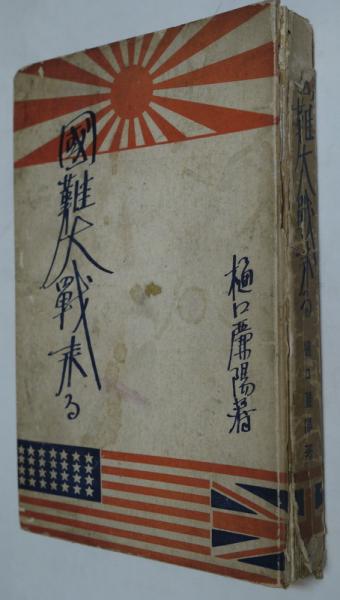 國難大戰来る
樋口麗陽著
國難大戰来る
樋口麗陽著